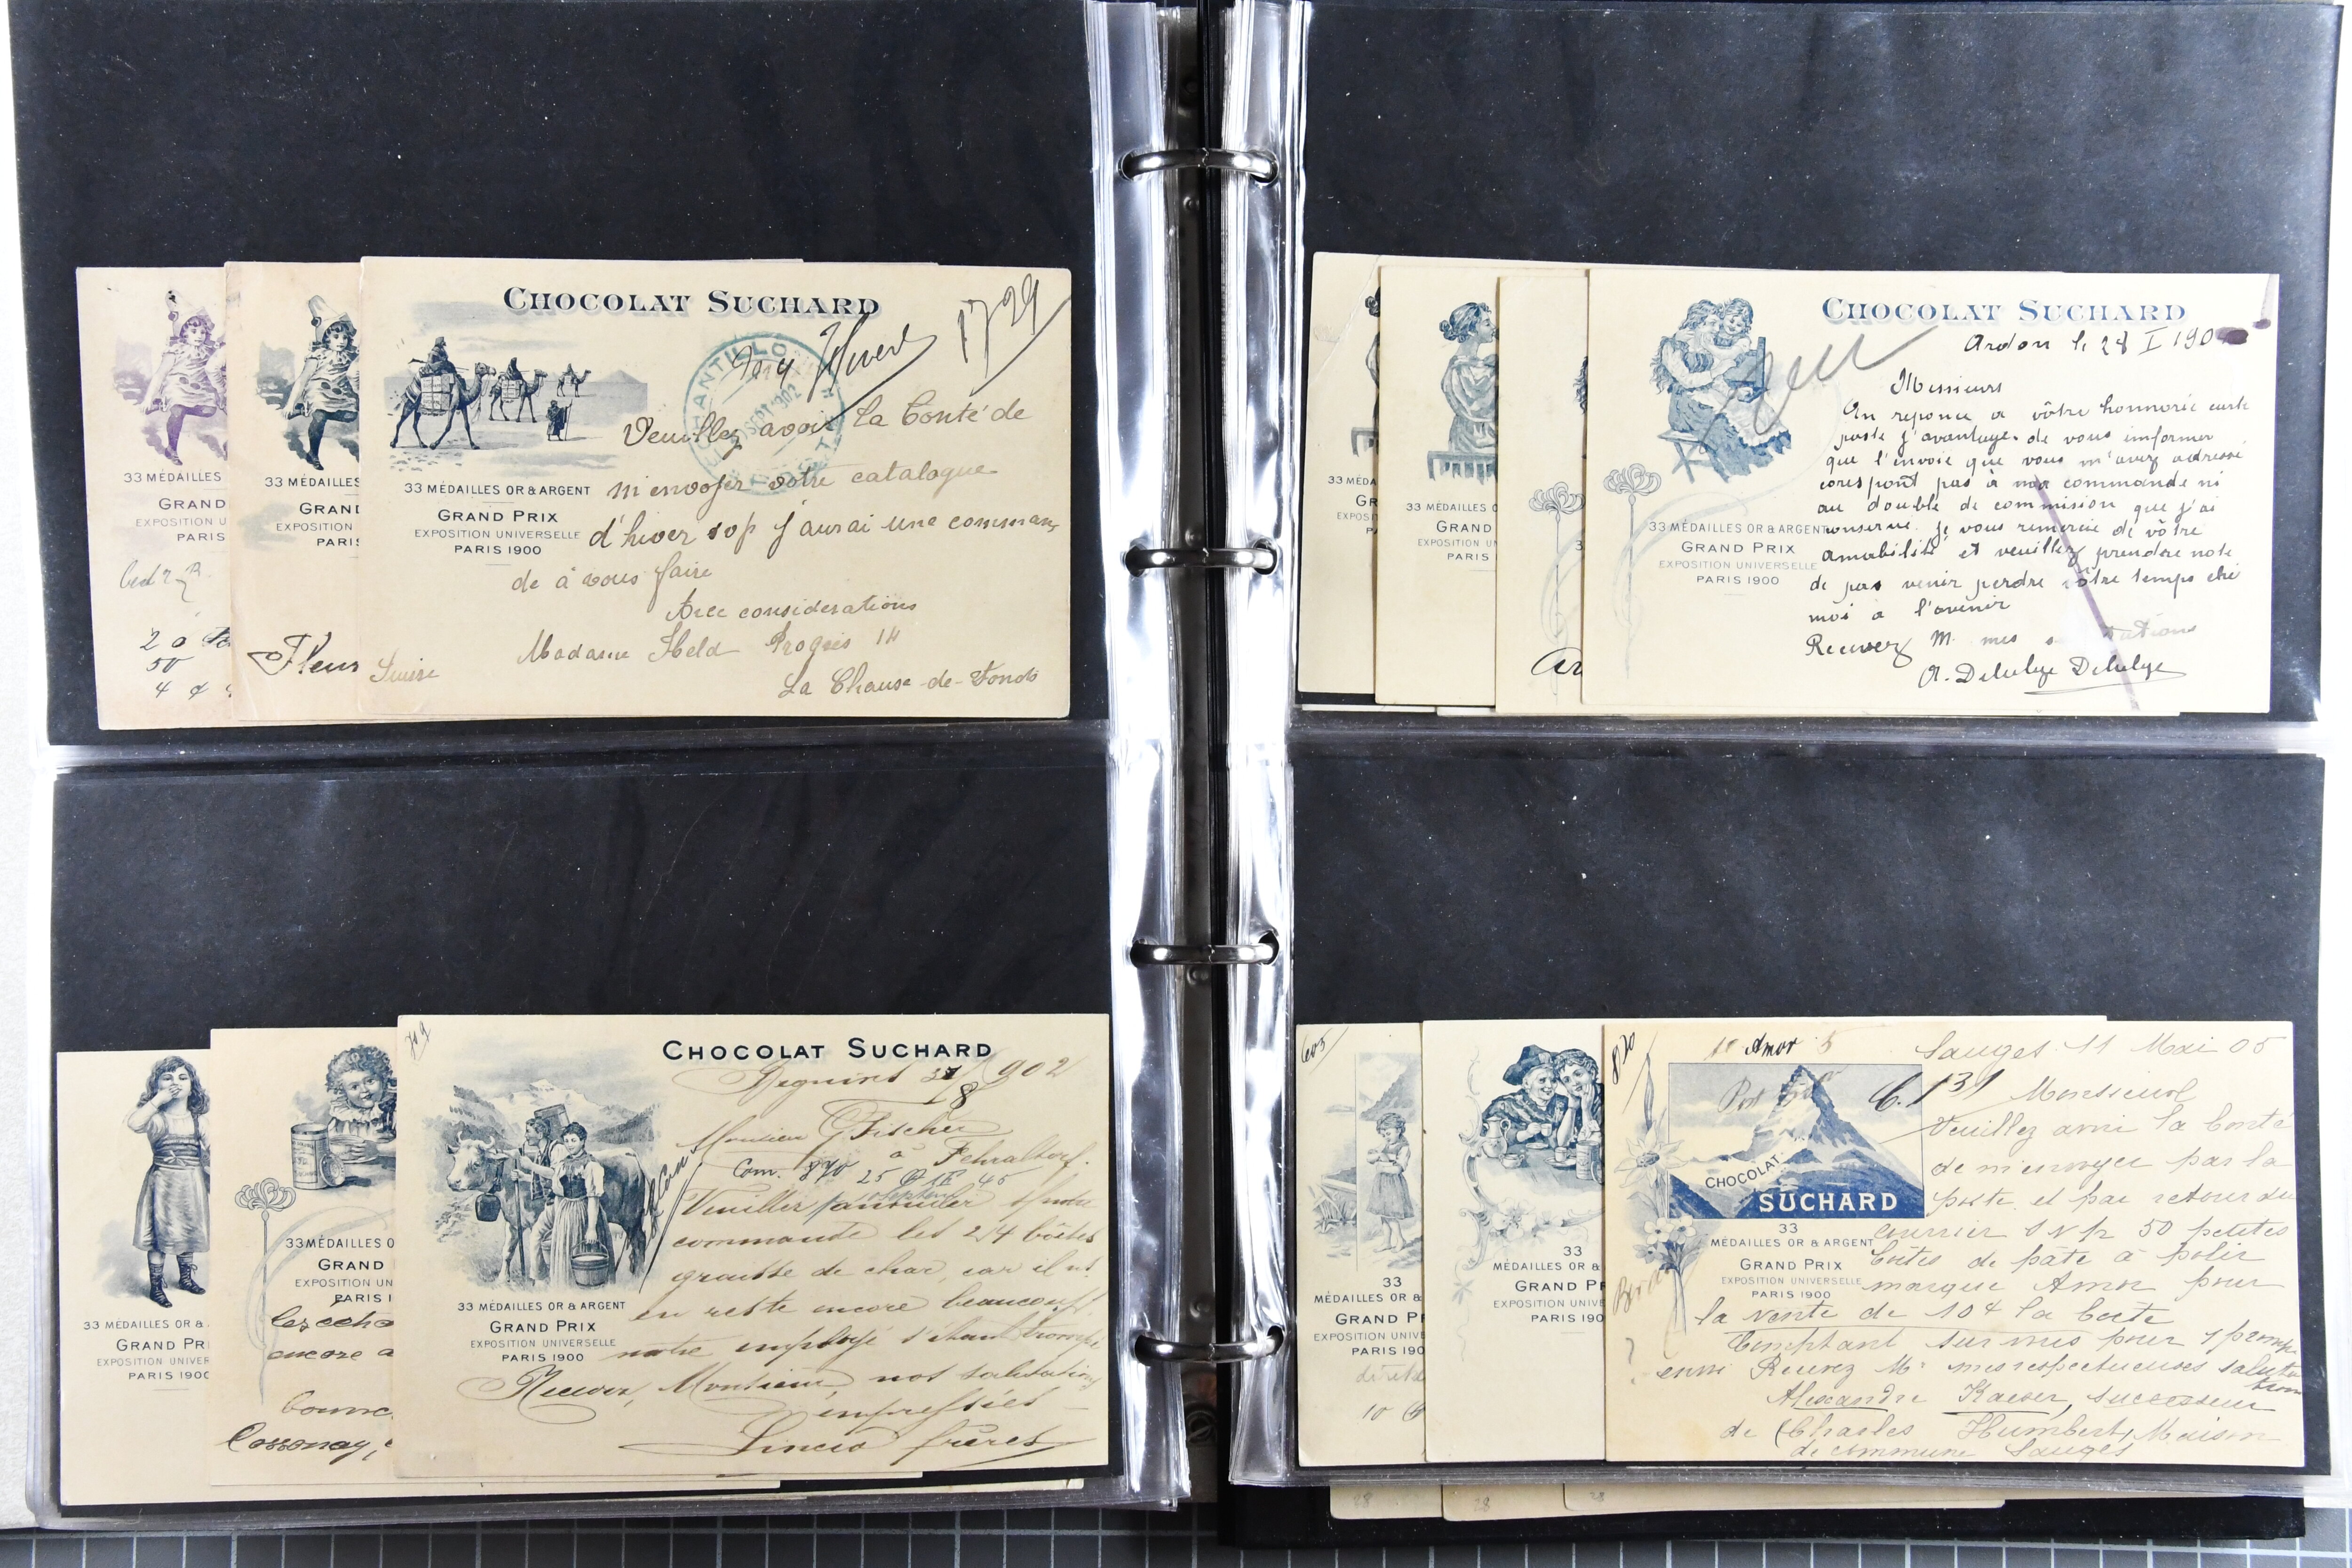 33 MÉDAILLES
GRAND
EXPOSITION U
PARIS
20
50
4
33 MÉDAILLES
GRAND
EXPOSITION
PARIS
Fleur
CHOCOLAT SUCHARD
1729
ECHANTILLO
SEPT 1902
Veuillez avoir la bonté de
m'envoyer votre catalogue
d'hiver sop j'aurai une comman
de à vous faire
Avec considerations
Madame Held Progrès 14
Suisse
La Chause-de-Fonds
33 MÉDAILLES OR & ARGENT
GRAND PRIX
EXPOSITION UNIVERSELLE
PARIS 1900
33 MÉDA
GR
EXPOS
33 MÉDAILLES O
GRAND
EXPOSITION UN
PARIS
3
Ar
CHOCOLAT SUCHARD
Ardon le 28 I 190
Messieurs
En reponce a vôtre honnorée carte
poste j'avantage de vous imformer
que l'envoie que vous m'avez adressé
corespont pas à ma commande ni
au double de commision que j'ai
conservé. je vous remercie de vôtre
amabilité et veuillez prendere note
de pas venir perdre vôtre temps ché
moi a l'avenir
Recevez M. mes
A. Delulye Delulye
33 MÉDAILLES OR & ARGENT
GRAND PRIX
EXPOSITION UNIVERSELLE
PARIS 1900
33 MÉDAILLES OR &
GRAND PRI
EXPOSITION UNIVER
PARIS 190
33 MÉDAILLES O
GRAND
EXPOSITION UN
PARIS 1
les écha
encore a
Cossonay,
CHOCOLAT SUCHARD
1902
8
Monsieur G Fischer
à Fehraltorf.
Com. 870 25 45
Veuillez annuler s/notre
commande les 24 bôites
graisse de char, car il n.
en reste encore beaucoup.
notre employé s'étant trompé
Recevez, Monsieur, nos salutations
empressées
frères
33 MÉDAILLES OR & ARGENT
GRAND PRIX
EXPOSITION UNIVERSELLE
PARIS 1900
605
33
MÉDAILLES OR &
GRAND PR
EXPOSITION UNIVE
PARIS 190
10
33
MÉDAILLES OR &
GRAND PR
EXPOSITION UNIVE
PARIS 190
870
Amor 5
Sauges 11 Mai 05
C. 131
Monsieur
Veuillez avoir la bonté
de m'envoyer par la
poste et par retour du
courrier 50 petites
boîtes de pâte à polir
marque Amor pour
la vente de 10 ct la boîte
Comptant sur vous pour 1 promp
envoi Recevez Mr mes respectueuses saluta
tions
Alexandre Kaeser, successeur
de Charles Humbert, Maison
de commune Sauges
CHOCOLAT
SUCHARD
33
MÉDAILLES OR & ARGENT
GRAND PRIX
EXPOSITION UNIVERSELLE
PARIS 1900
28
28
28